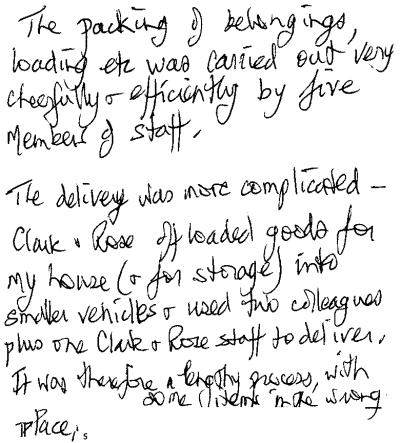 The packing of belongings,
loading etc was carried out very
cheerfully & efficiently by five
members of staff.
The delivery was more complicated –
Clark & Rose offloaded goods for
my house (& for storage) into
smaller vehicles & used two colleagues
plus one Clark & Rose staff to deliver.
It was therefore a lengthy process, with
some items in the wrong
place.